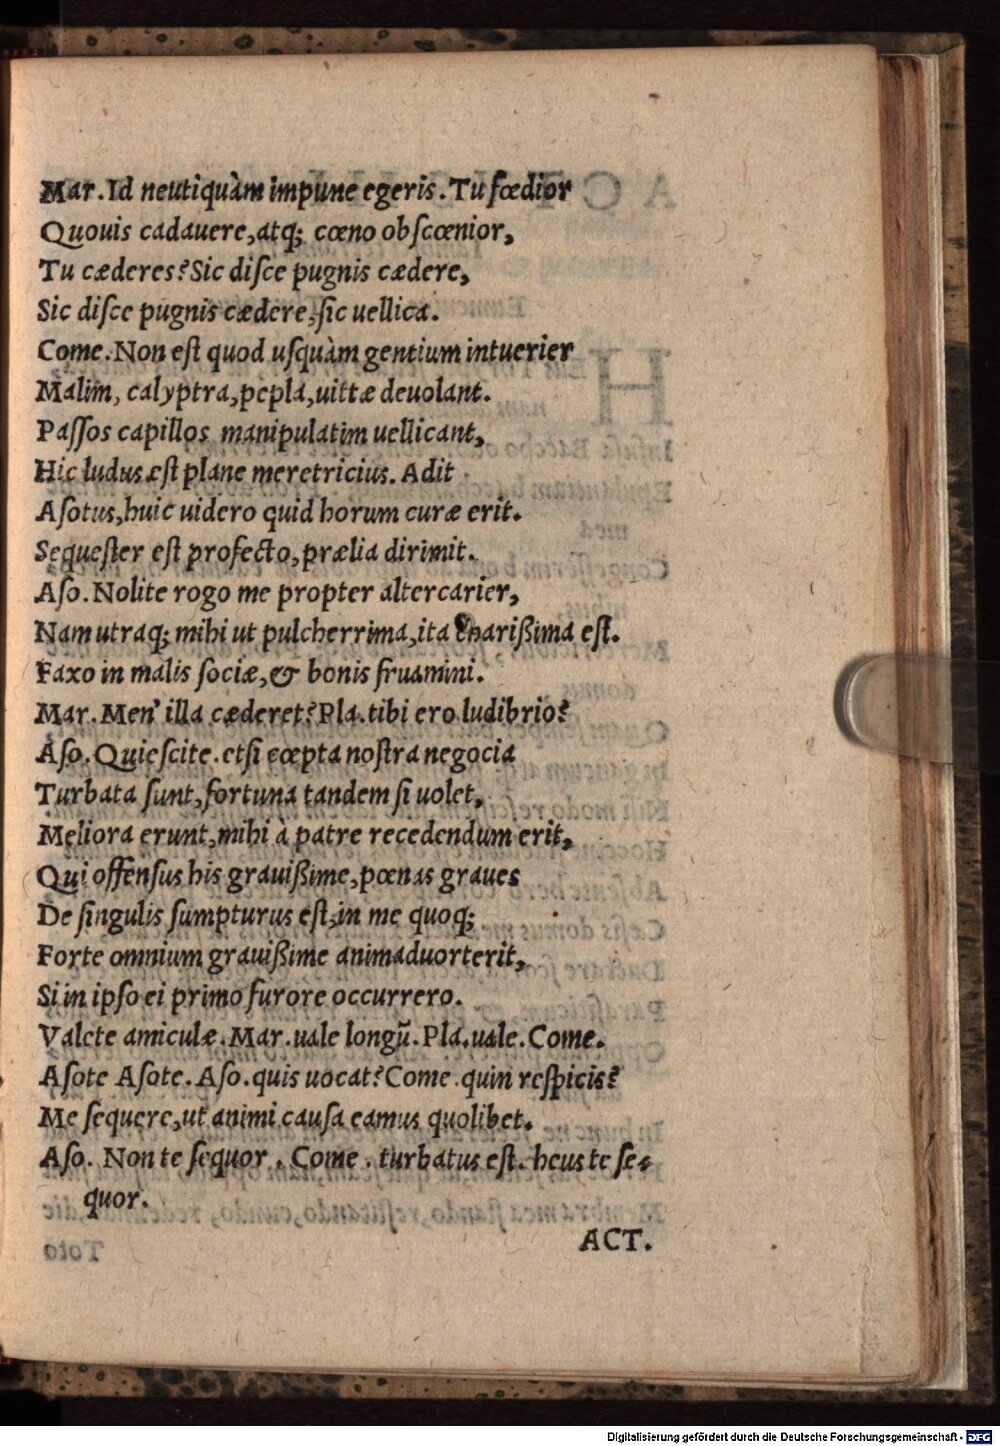 Mar. Id neutiquàm impune egeris. Tu fœdior
Quouis cadauere, atq; cœno obſcœnior,
Tu cæderes? Sic diſce pugnis cædere,
Sic diſce pugnis cædere, ſic uellica.
Come. Non eſt quod uſquàm gentium intuerier
Malim, calyptra, pepla, uittæ deuolant.
Paſſos capillos manipulatim uellicant,
Hic ludus eſt plane meretricius. Adit
Aſotus, huic uidero quid horum curæ erit.
Sequeſter eſt profecto, prælia dirimit.
Aſo. Nolite rogo me propter altercarier,
Nam utraq; mihi ut pulcherrima, ita charißima eſt.
Faxo in malis ſociæ, & bonis fruamini.
Mar. Men' illa cæderet? Pla. tibi ero ludibrio?
Aſo. Quieſcite. etſi cœpta noſtra negocia
Turbata ſunt, fortuna tandem ſi uolet,
Meliora erunt, mihi à patre recedendum erit,
Qui offenſus his grauißime, pœnas graues
De ſingulis ſumpturus eſt, in me quoq;
Forte omnium grauißime animaduorterit,
Si in ipſo ei primo furore occurrero.
Valete amiculæ. Mar. uale longũ. Pla. uale. Come.
Aſote Aſote. Aſo. quis uocat? Come. quin reſpicis?
Me ſequere, ut animi cauſa eamus quolibet.
Aſo. Non te ſequor. Come. turbatus eſt. heus te ſe-
quor.
ACT.
Digitalisierung gefördert durch die Deutsche Forschungsgemeinschaft - DFG